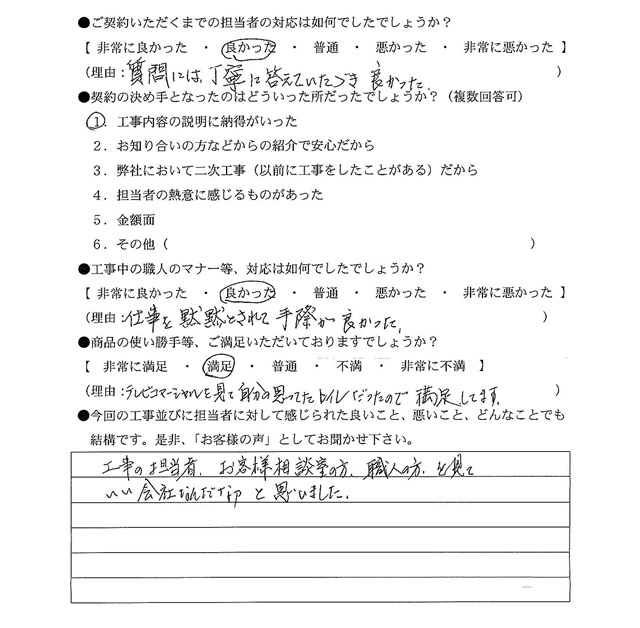 ●ご契約いただくまでの担当者の対応は如何でしたでしょうか？
【 非常に良かった ・ 良かった ・ 普通 ・ 悪かった ・ 非常に悪かった 】
（理由：質問には、丁寧に答えていただき 良かった。 ）
●契約の決め手となったのはどういった所だったでしょうか？（複数回答可）
1．工事内容の説明に納得がいった
2．お知り合いの方などからの紹介で安心だから
3．弊社において二次工事（以前に工事をしたことがある）だから
4．担当者の熱意に感じるものがあった
5．金額面
6．その他（ ）
●工事中の職人のマナー等、対応は如何でしたでしょうか？
【 非常に良かった ・ 良かった ・ 普通 ・ 悪かった ・ 非常に悪かった 】
（理由：仕事を黙黙とされて 手際が 良かった。 ）
●商品の使い勝手等、ご満足いただいておりますでしょうか？
【 非常に満足 ・ 満足 ・ 普通 ・ 不満 ・ 非常に不満 】
（理由：テレビコマーシャルを見て自分の思ってたトイレだったので 満足してます。 ）
●今回の工事並びに担当者に対して感じられた良いこと、悪いこと、どんなことでも
結構です。是非、「お客様の声」としてお聞かせ下さい。
工事の担当者、お客様相談室の方、職人の方、を見て
いい会社なんだなって と思いました。